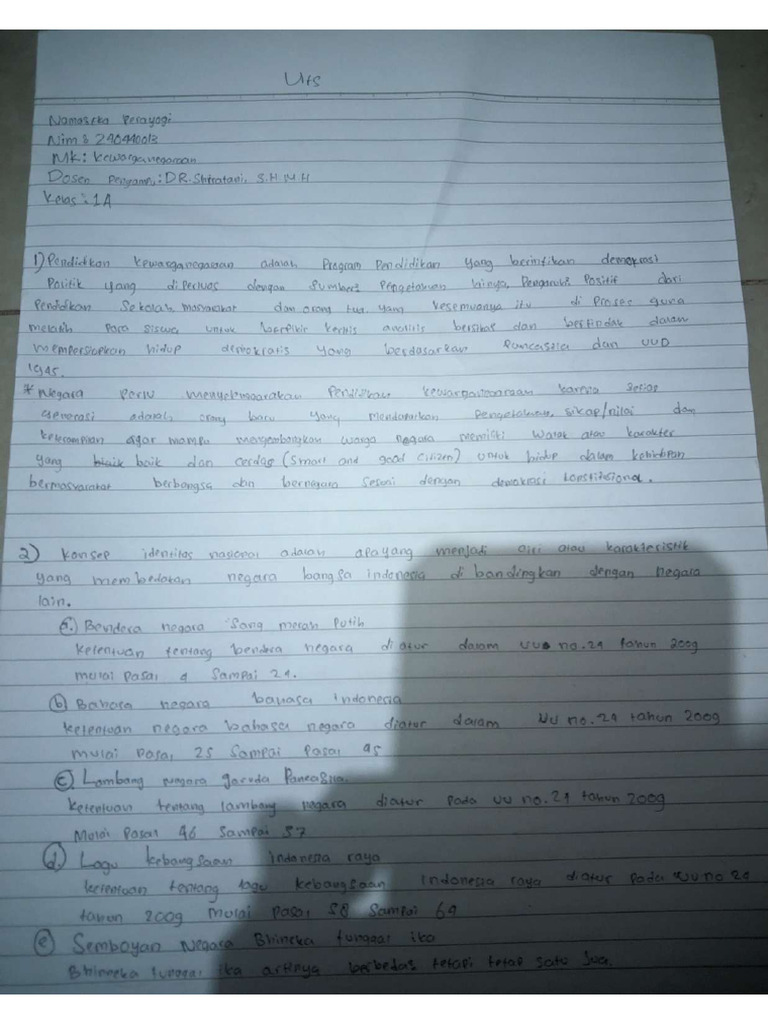 UTS
Nama: Eka Perayogi
Nim : 240440013
Mk : Kewarganegaraan
Dosen Pengampu : DR. S.H M.H
Kelas : 1A
1) Pendidikan kewarganegaraan adalah Program Pendidikan yang berintikan demokrasi
Politik yang diperluas dengan sumber2 Pengetahuan lainya, Pengaruh2 Positif dari
Pendidikan Sekolah, masyarakat dan orang tua. yang kesemuanya itu di Proses guna
melatih Para siswa untuk berfikir kritis analitis bersikap dan bertindak dalam
mempersiapkan hidup demokratis yang berdasarkan Pancasila dan UUD
1945.
* Negara perlu menyelenggarakan Pendidikan kewarganegaraan karena setiap
generasi adalah orang baru yang mendapatkan Pengetahuan, sikap/nilai dan
keterampilan agar mampu mengembangkan warga negara memiliki watak atau karakter
yang baik dan cerdas (Smart and good citizen) untuk hidup dalam kehidupan
bermasyarakat berbangsa dan bernegara sesuai dengan demokrasi konstitusional.
2) Konsep identitas nasional adalah apa yang menjadi ciri atau karakteristik
yang membedakan negara bangsa indonesia di bandingkan dengan negara
lain.
a. Bendera negara Sang merah Putih
ketentuan tentang bendra negara diatur dalam UU no.24 tahun 2009
mulai Pasal 4 sampai 24.
b) Bahasa negara bahasa indonesia
ketentuan negara bahasa negara diatur dalam UU no.24 tahun 2009
mulai Pasal 25 sampai Pasal 45
c. Lambang Negara garuda Pancasila.
ketentuan tentang lambang negara diatur pada UU no.24 tahun 2009
Mulai Pasal 46 sampai 57
d. Lagu kebangsaan indonesia raya
ketentuan tentang lagu kebangsaan indonesia raya diatur pada UU no 24
tahun 2009 mulai Pasal 58 sampai 64
e) Semboyan Negara Bhineka tunggal ika
Bhineka tunggal ika artinya berbeda2 tetapi tetap satu Jua.